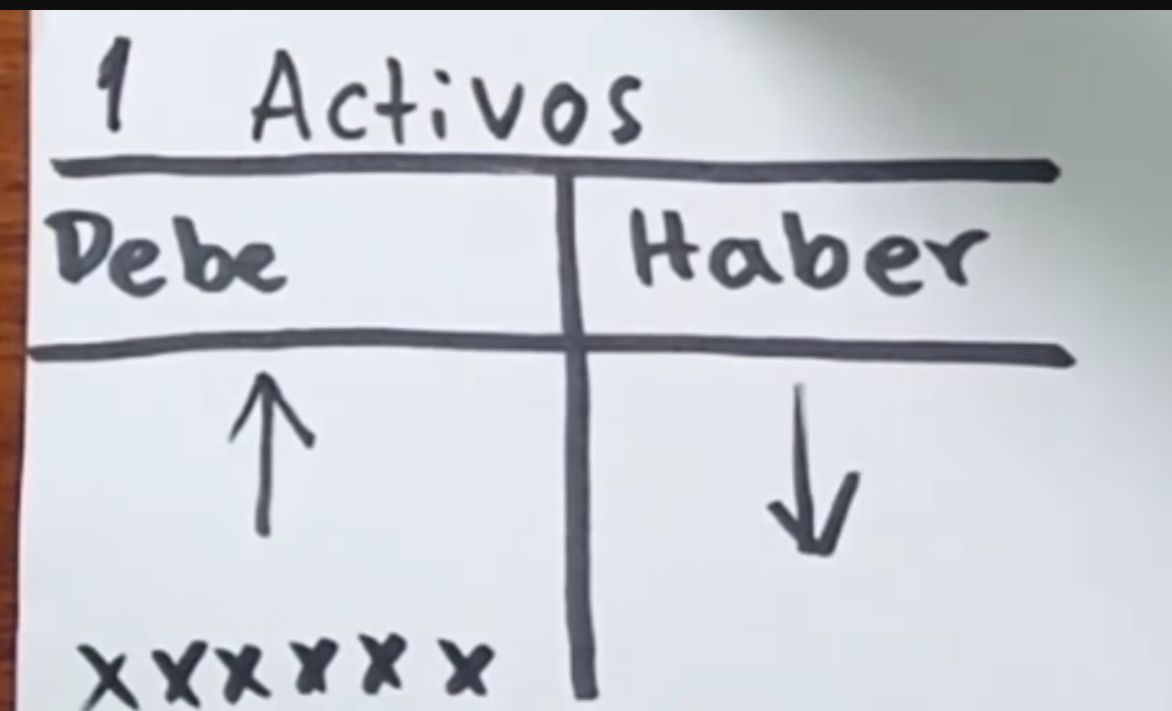 1 Activos
Debe Haber
↑ ↓
xxxxxx